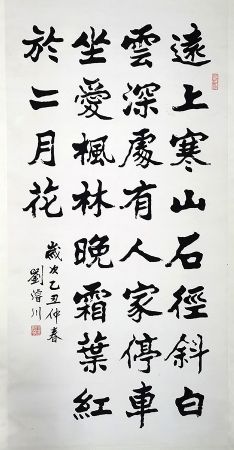 遠上寒山石徑斜白
雲深處有人家停車
坐愛楓林晚霜葉紅
於二月花
歲次乙丑仲春
劉 川